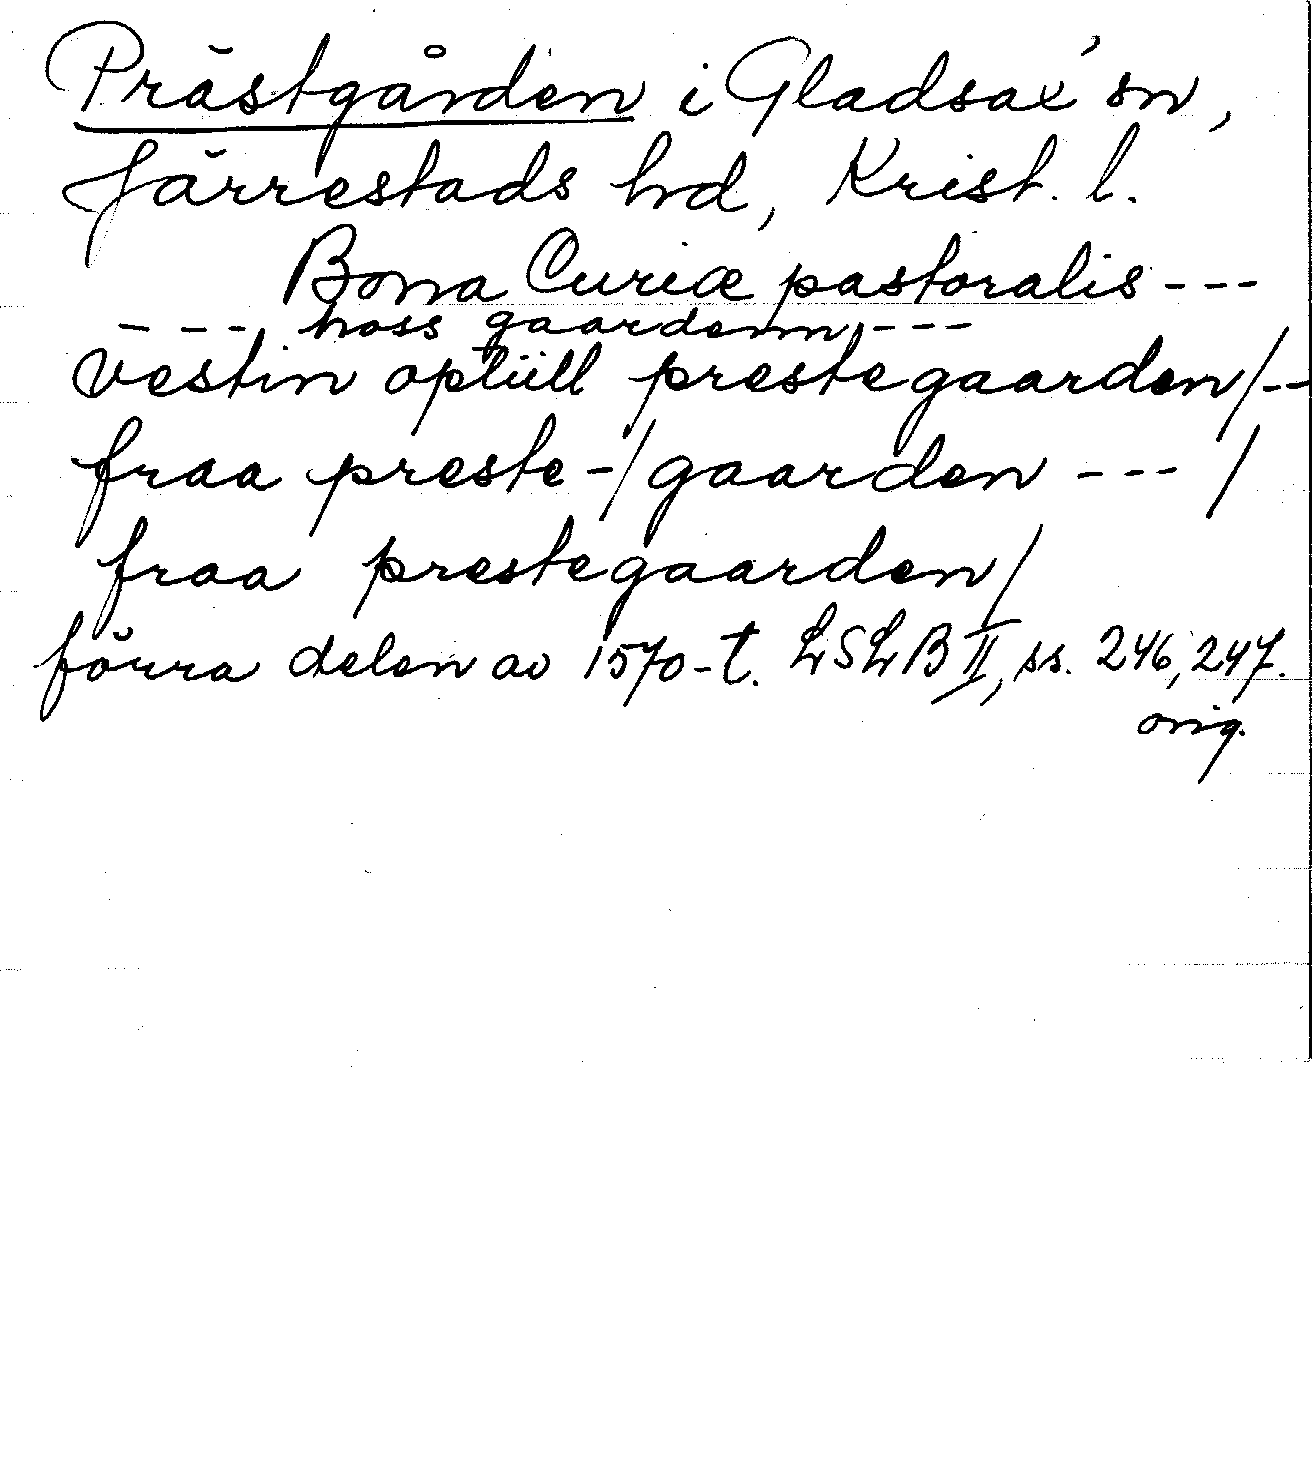 Prästgården i Gladsax' sn,
Järrestads hd, Krist. l.
Bona Curiæ pastoralis ---
--- hoss gaardenn, ---
vestin optüll prestegaarden/--
fraa preste-/gaarden --- /
fraa prestegaarden/
förra delen av 1570-t. LSLB II, ss. 246, 247.
orig.